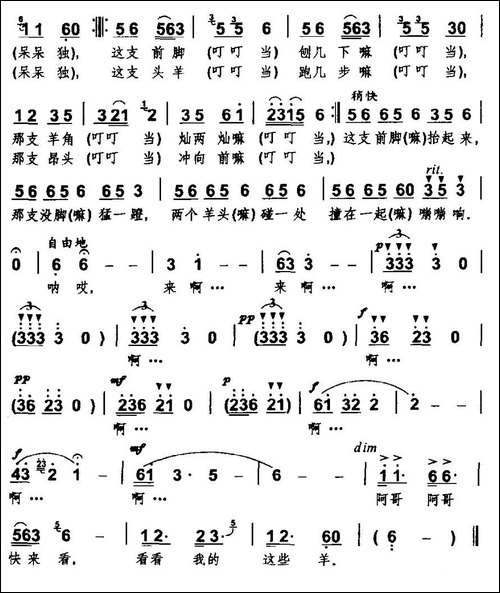 6 1 1 60 :56 563 | 5 5 6 | 56 563 | 5 5 5 30 |
(呆呆 独), 这支 前脚 (叮叮 当) 刨几 下嘛 (叮叮 当),
(呆呆 独), 这支 头羊 (叮叮 当) 跑几 步嘛 (叮叮 当),
稍快
12 35 | 321 2 | 35 61 | 2315 6 : 56 65 65 6 | 35 6 |
那支 羊角 (叮叮 当) 灿两 灿嘛 (叮叮 当,) 这支前脚(嘛)抬起来,
那支 昂头 (叮叮 当) 冲向 前嘛 (叮叮 当,)
rit.
56 65 65 6 | 65 3 | 56 65 65 6 | 65 3 | 56 65 60 | 35 3 |
那支没脚(嘛) 猛一蹬, 两个羊头(嘛) 碰一处 撞在一起(嘛) 嘣嘣响.
自由地
p
0 | 6 6 - - | 3 1 - - | 63 3 - - | 333 3 - |
呐哎, 来啊… 来啊… 啊…
pp f
(333 3 0) | 333 3 0 | (333 3 0) | 36 23 0 |
啊… 啊…
pp mf p f
(36 23 0) | 236 21 0 | (236 21) | 61 32 2 | 2 - - |
啊… 啊…
f mf dim
43 2 1 - | 61 3· 5 - | 6 - - | 11· 66· |
啊… 啊… 阿哥 阿哥
563 6 - | 12· 23· | 12· 60 | (6 - ) ‖
快来 看, 看看 我的 这些 羊.